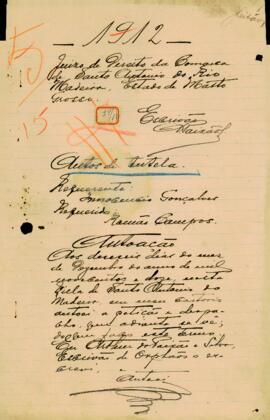 1912
Juizo de Direito da Comarca
de Santo Antonio do Rio
Madeira, Estado de Matto
Grosso.
15
Escrivão
Autos de tutela.
Requerente
Innocencio Gonçalves
Requerido
Ramão Campos.
Autoação
Aos dias do mez
de Dezembro do anno de mil
novecentos e doze, nesta
Villa de Santo Antonio do
Madeira, em meu cartorio
autoei a petição e despa-
cho, que adiante se vê;
do que faço este termo.
Eu Arthur da Silva,
Escrivão de Orphãos o es-
crevi.